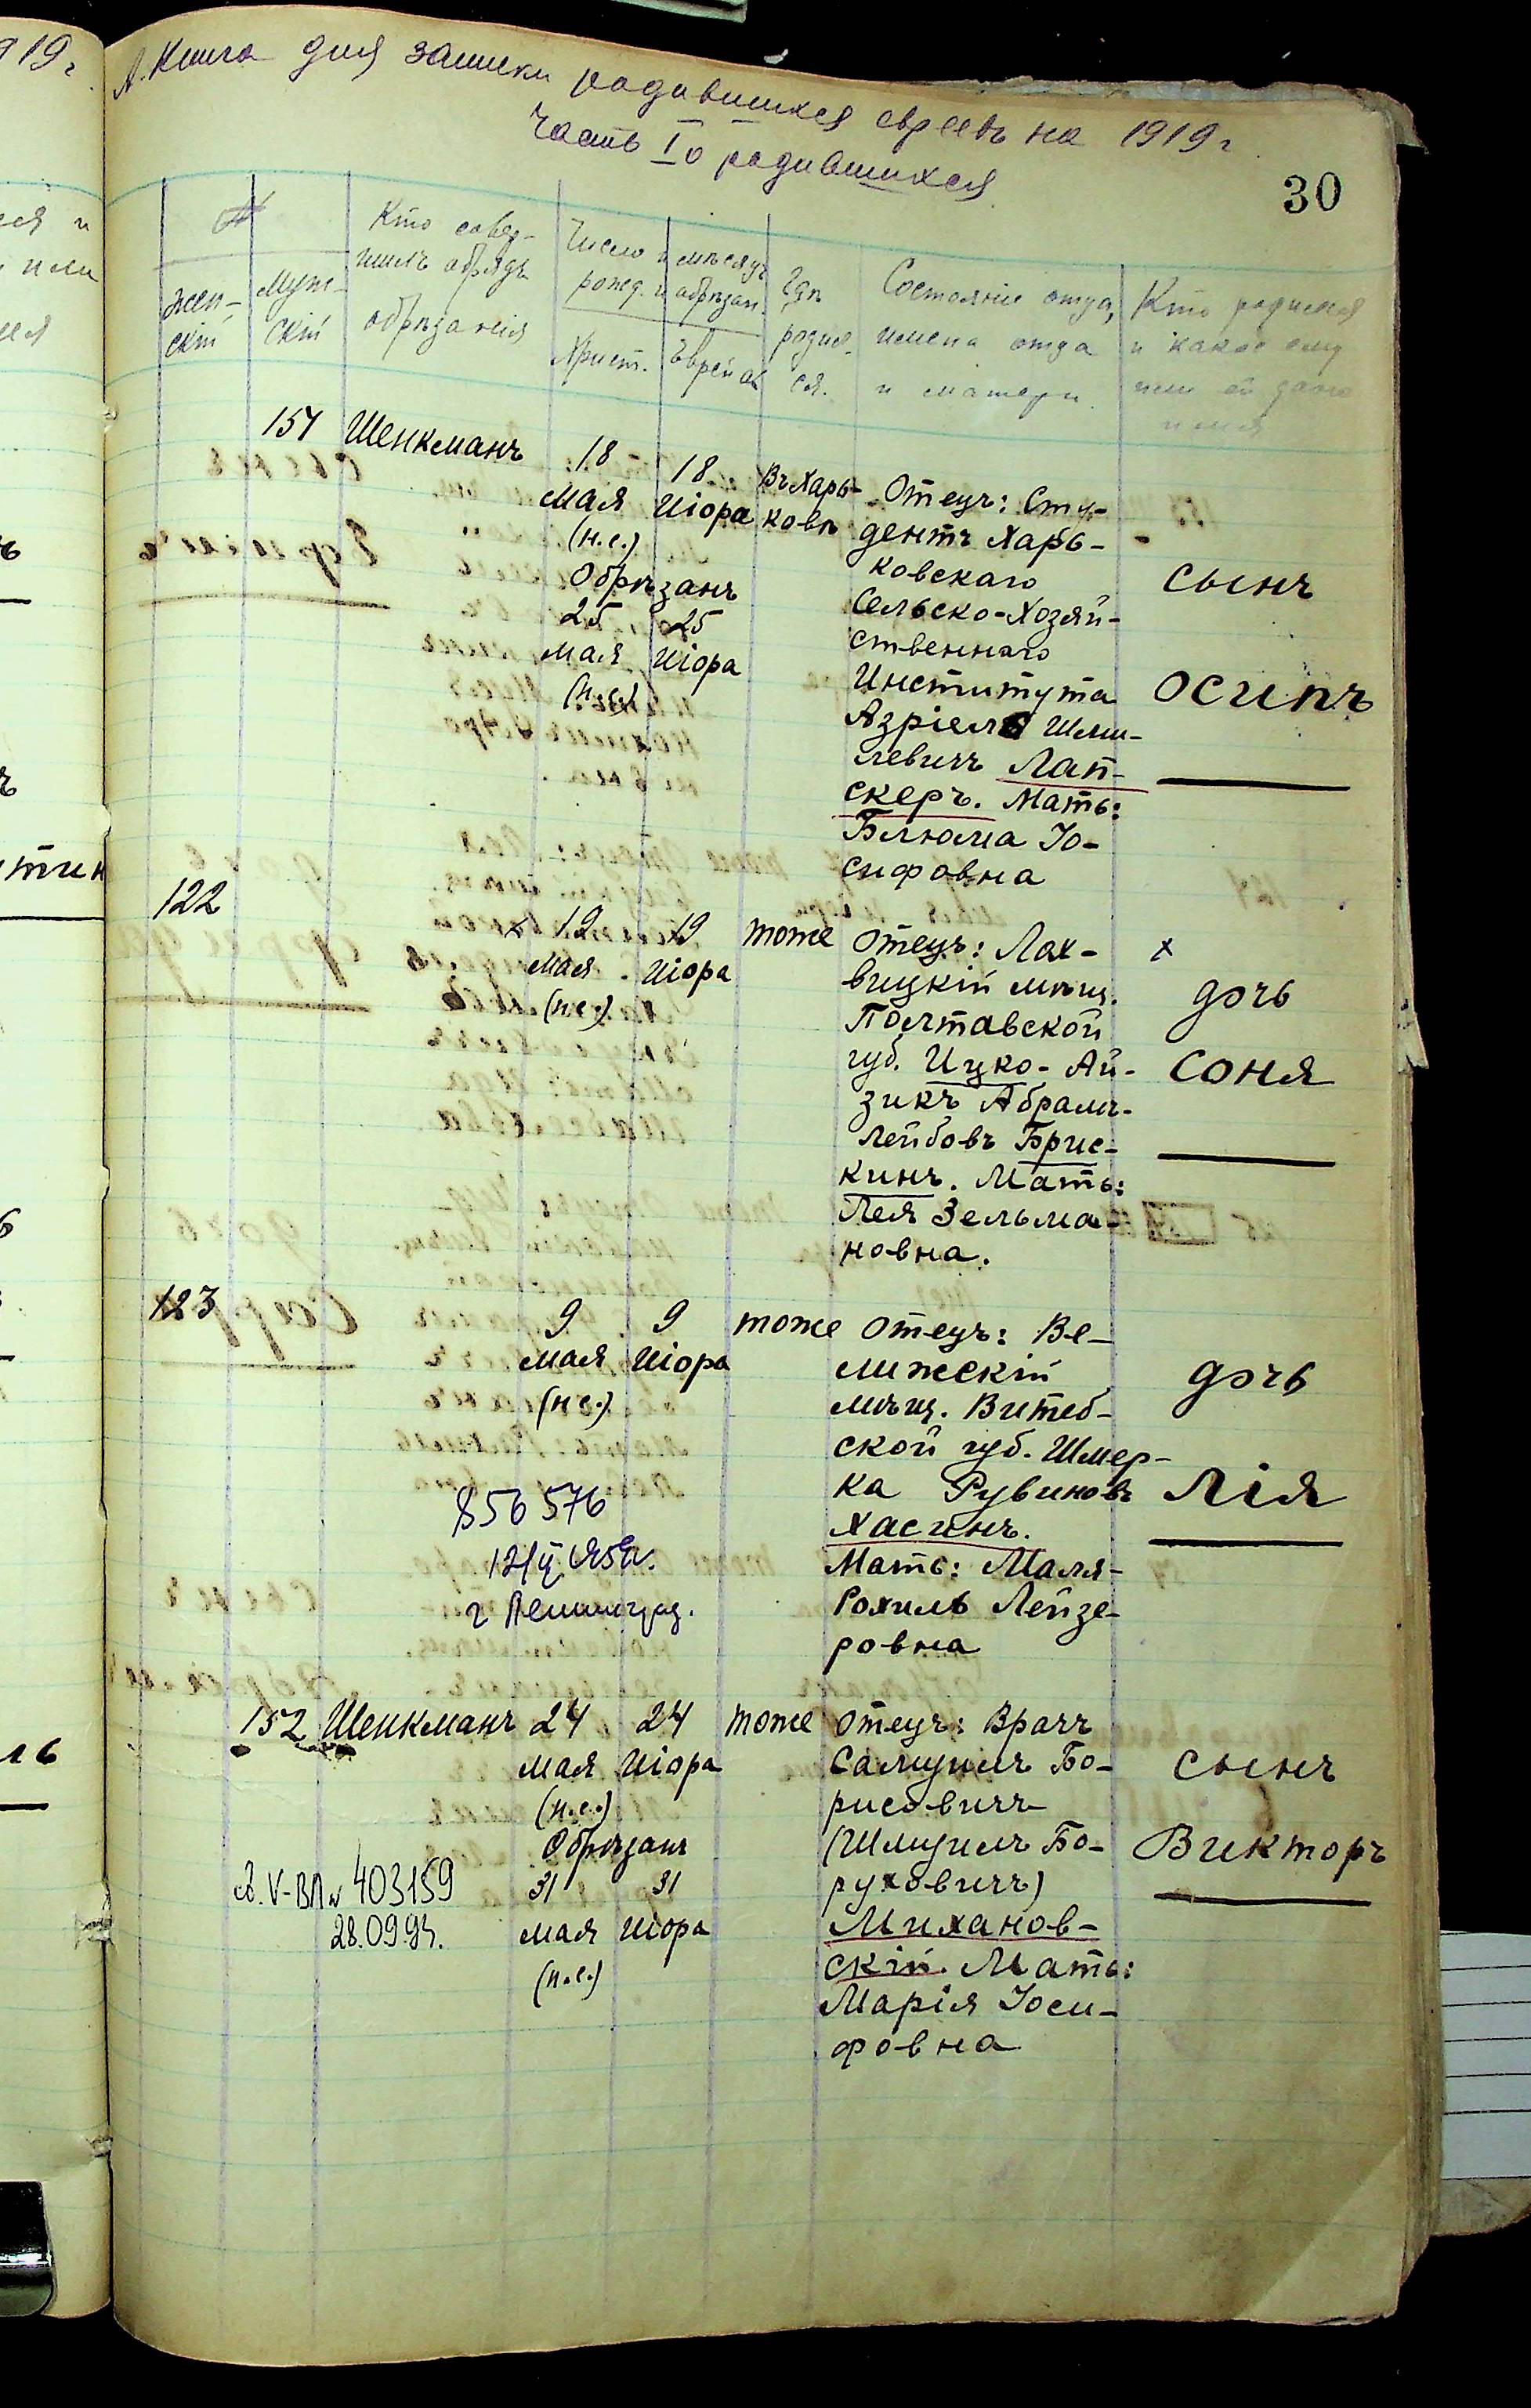 А. Книга для записки родившихся евреевъ на 1919 г
Часть I о родившихся
30
№
Жен-
скій
Муж-
скій
Кто совер-
шилъ обрядъ
обрѣзанія
Число и мѣсяцъ
рожд. и обрѣзан.
Христ.
Еврейск
Гдѣ
родил-
ся.
Состояніе отца,
имена отца
и матери
Кто родился
и какое ему
или ей дано
имя
151 Шенкманъ
18
Мая
(н.с.)
18
Иіора
Обрѣзанъ
25
мая
(н.с.)
25
Иіора
Въ Харь-
ковѣ
Отецъ: Сту-
дентъ Харь-
ковскаго
Сельско-Хозяй-
ственнаго
Института
Азріель Шми-
левичъ Лап-
скеръ. Мать:
Блюма Іо-
сифовна
сынъ
Осипъ
122
х 19
Мая
(н.с.)
19
Иіора
тоже
Отецъ: Лох-
вицкій мѣщ.
Полтавской
губ. Ицко-Ай-
зикъ Абрамъ-
Лейбовъ Брис-
кинъ. Мать:
Лея Зельма-
новна.
х
дочь
Соня
123
9
мая
(н.с.)
9
Иіора
тоже
Отецъ: Ве-
лижскій
мѣщ. Витеб-
ской губ. Шмер-
ка Рувиновъ
Хасинъ.
Мать: Маля-
Рохиль Лейзе-
ровна
дочь
Лія
856576
г Ленинград.
152 Шенкманъ
24
мая
(н.с.)
24
Иіора
Обрѣзанъ
31
мая
(н.с.)
31
Иіора
тоже
Отецъ: Врачъ
Самуилъ Бо-
рисовичъ
(Шмуилъ Бо-
руховичъ)
Миханов-
скій. Мать:
Марія Іоси-
фовна
сынъ
Викторъ
св. V-ВЛ № 403159
28.09.94.